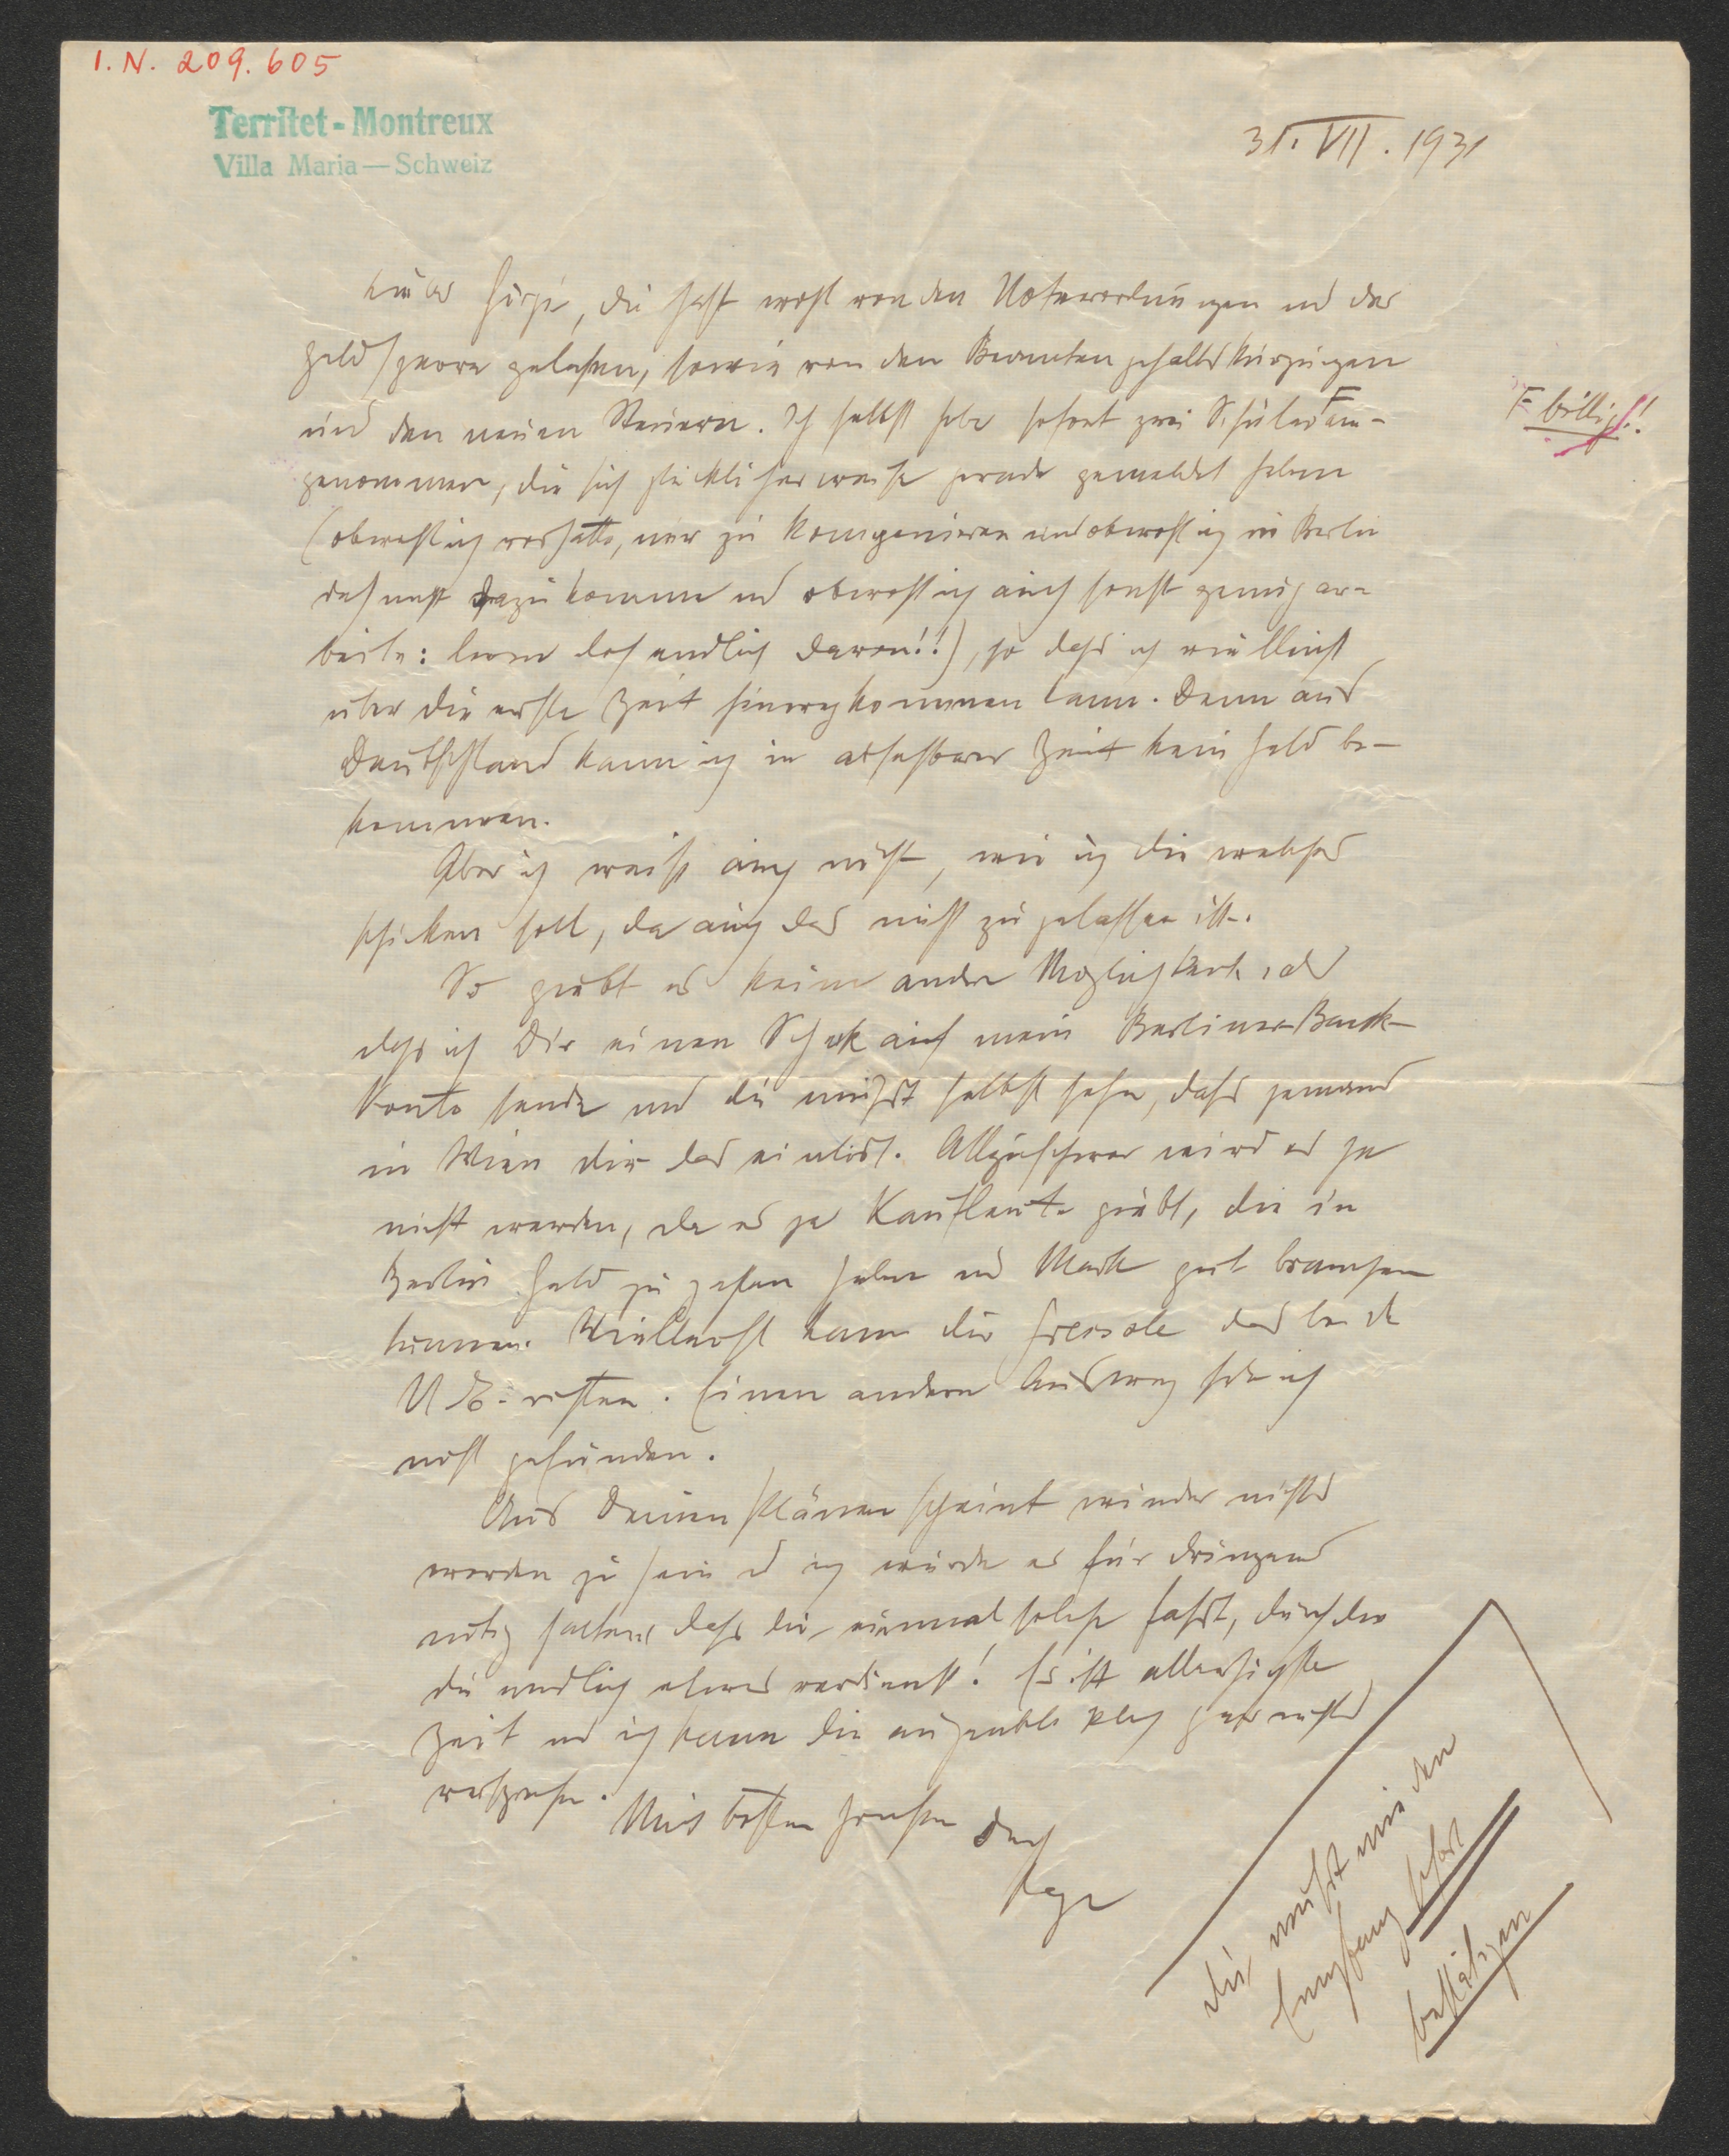 I.N. 209.605
Territet-Montreux
Villa Maria — Schweiz
31. VII. 1931
Lieber Görgi, du hast wohl von den Notverordnungen und der
Geldsperre gelesen, sowie von den Beamtengehaltskürzungen
und den neuen Steuern. Ich selbst habe sofort zwei Schüler F an-
F billig!!
genommen, die sich glücklicherweise gerade gemeldet haben
(obwohl ich vorhatte, nur zu komponieren und obwohl ich in Berlin
doch nicht dazu komme und obwohl ich auch sonst genug ar-
beite: lerne doch endlich davon!!), so dass ich vielleicht
über die erste Zeit hinwegkommen kann. Denn aus
Deutschland kann ich in absehbarer Zeit kein Geld be-
kommen.
Aber ich weiss auch nicht, wie ich dir welches
schicken soll, da auch das nicht zugelassen ist.
So giebt es keine andre Möglichkeit, als
dass ich Dir einen Scheck auf mein Berliner Bank-
Konto sende und du musst selbst sehn, dass jemand
in Wien dir das einlöst. Allzuschwer wird es ja
nicht werden, da es ja Kaufleute giebt, die in
Berlin Geld zu zahlen haben und Mark gut brauchen
können. Vielleicht kann dir Greissle das bei der
U E richten. Einen andern Ausweg habe ich
nicht gefunden.
Aus Deinen Plänen scheint wieder nichts
worden zu sein und ich würde es für dringend
nötig halten, dass du einmal solche fasst, durch die
du endlich etwas verdienst! Es ist allerhöchste
Zeit und ich kann dir augenblicklich gar nichts
versprechen.
Mit besten Grüssen Dein
Papa
Du musst mir den
Empfang sofort
bestätigen